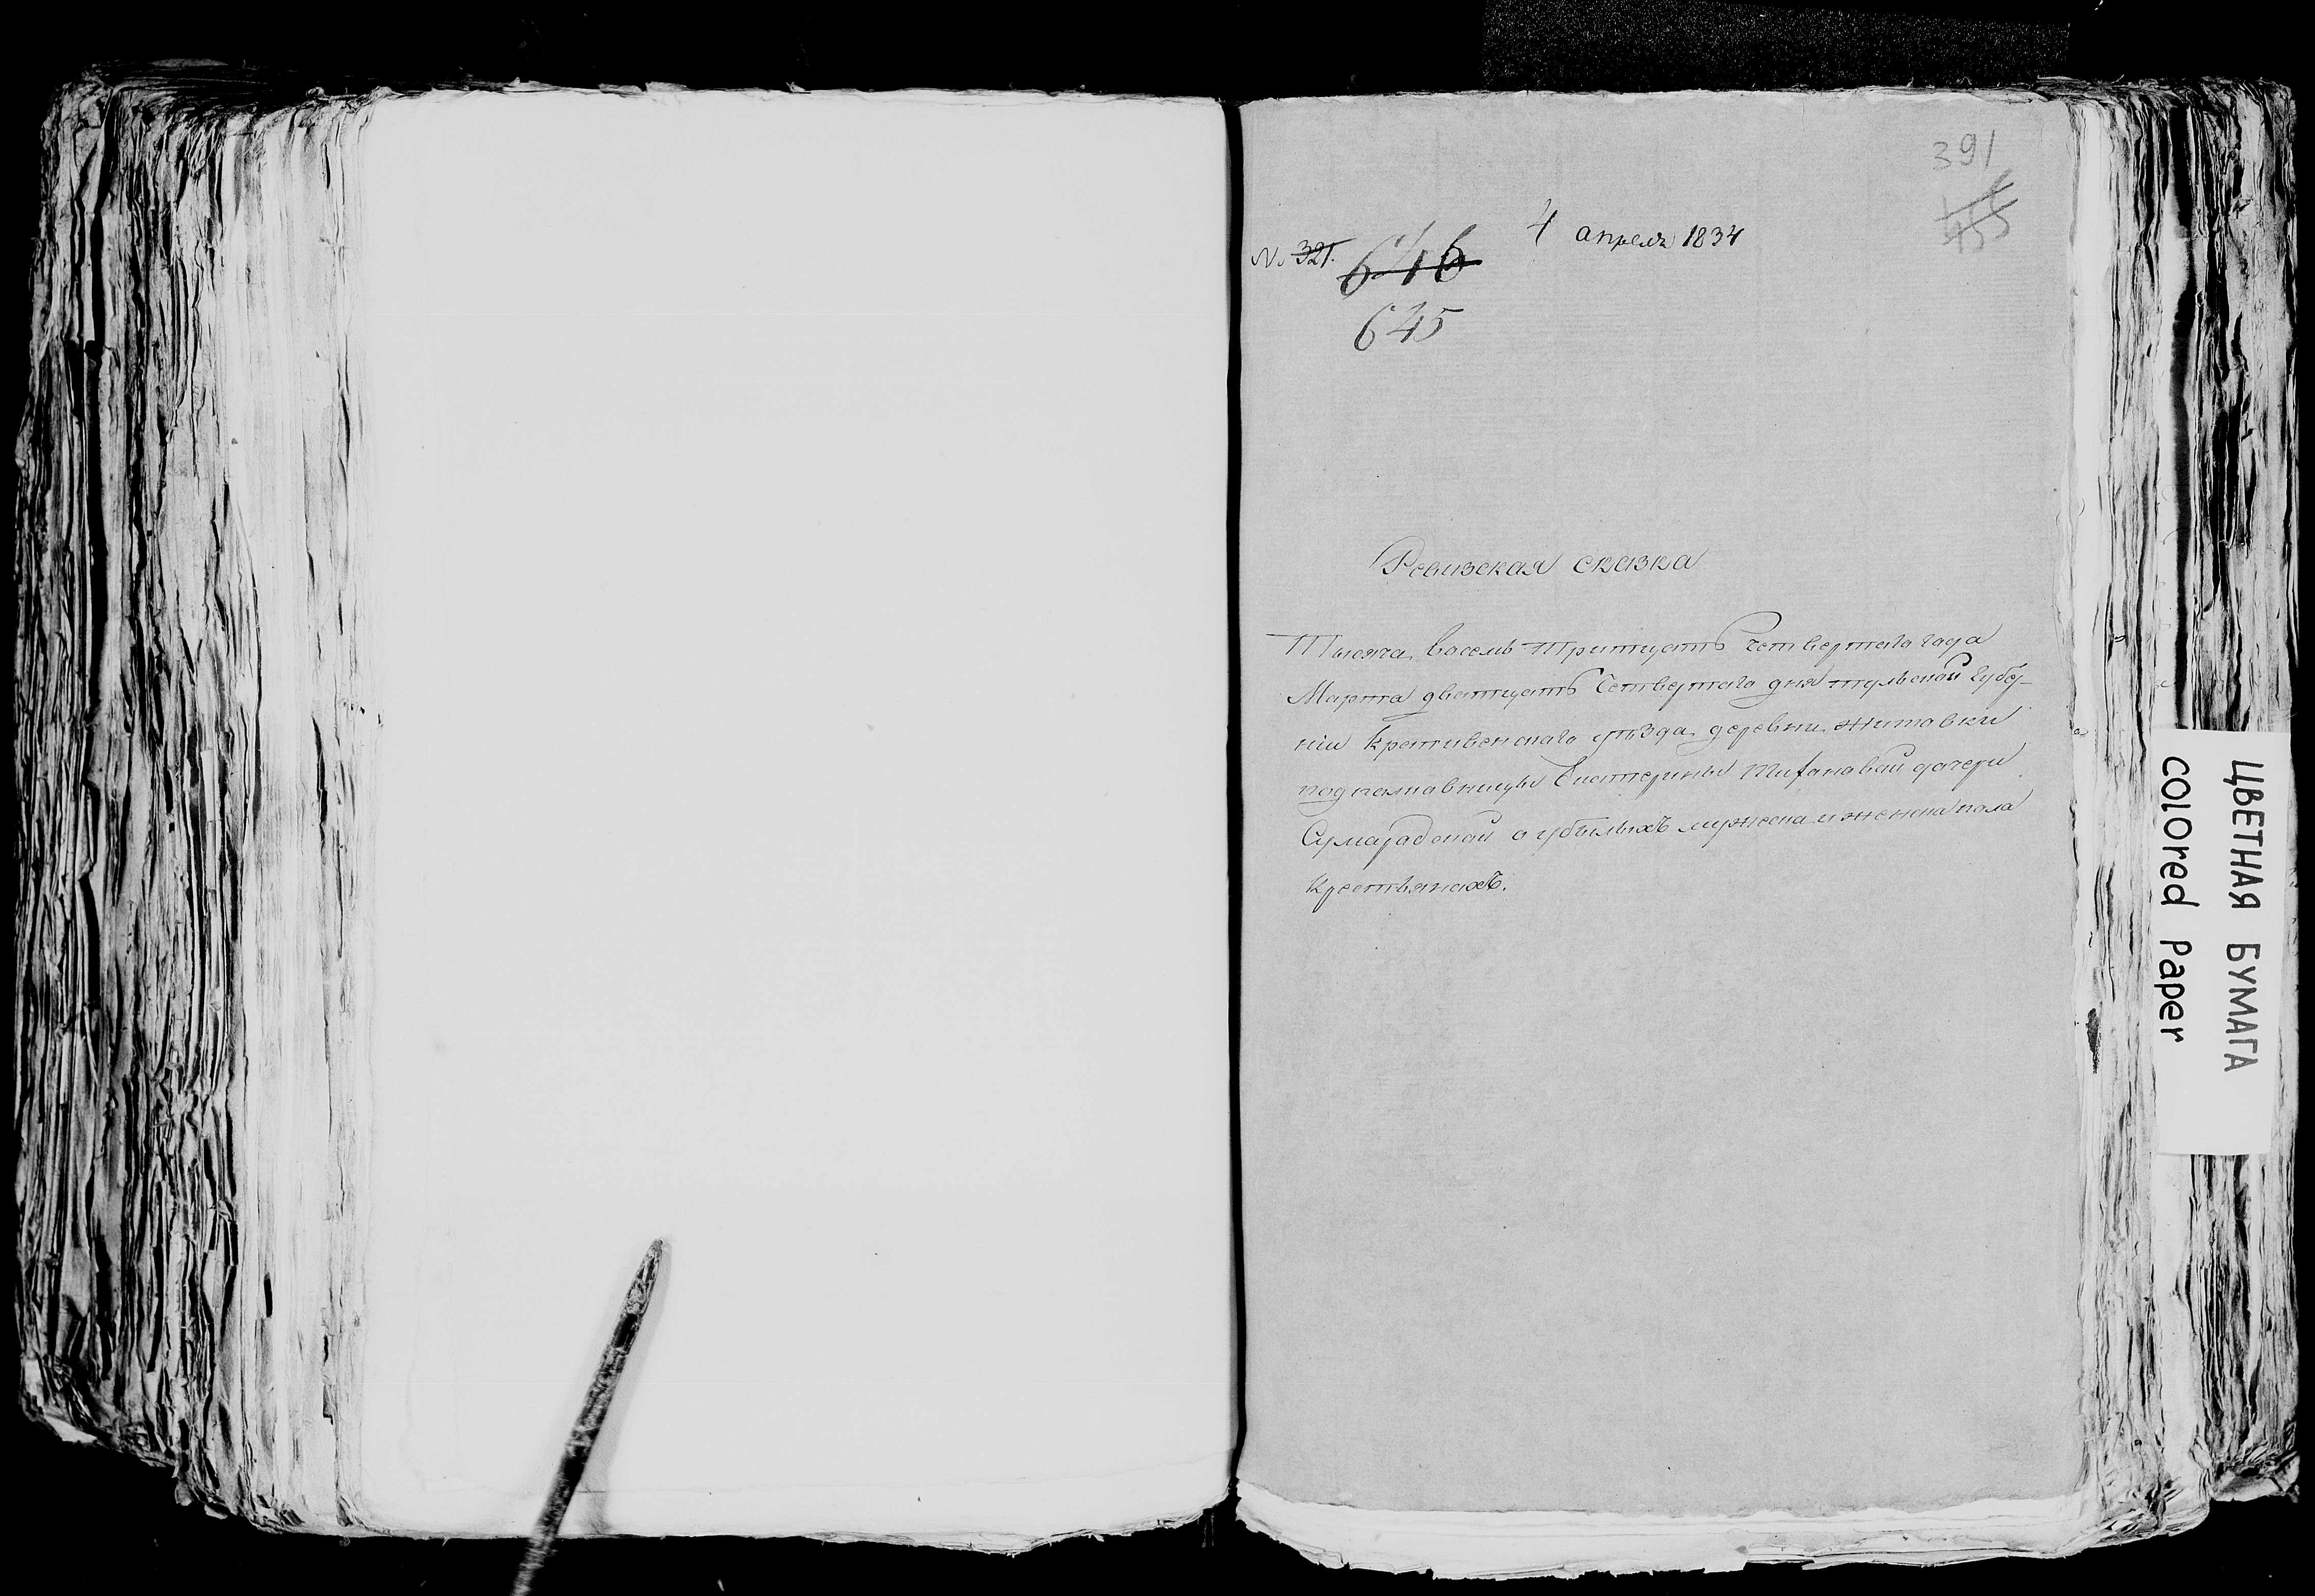 391
455
№ 321. 646 4 апреля 1834
645
Ревизская сказка
Тысяча восемь тритцать четвертаго года
Марта дватцать четвертаго дня тульской губер-
нии Крапивенскаго уѣзда деревни Житовки
подполковницы Екатерины Тифановай дочери
Сумароковой о убылыхъ мужеска и женска пола
крестьянахъ.
ЦВЕТНАЯ БУМАГА
COLORED PAPER